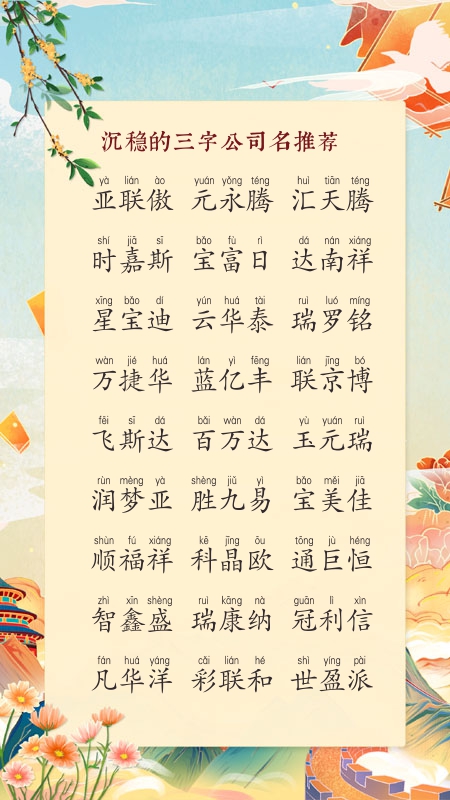 沉稳的三字公司名推荐
yà lián ào yuán yǒng téng huì tiān téng
亚联傲 元永腾 汇天腾
shí jiā sī bǎo fù rì dá nán xiáng
时嘉斯 宝富日 达南祥
xīng bǎo dí yún huá tài ruì luó míng
星宝迪 云华泰 瑞罗铭
wàn jié huá lán yì fēng lián jīng bó
万捷华 蓝亿丰 联京博
fēi sī dá bǎi wàn dá yù yuán ruì
飞斯达 百万达 玉元瑞
rùn mèng yà shèng jiǔ yì bǎo měi jiā
润梦亚 胜九易 宝美佳
shùn fú xiáng kē jīng ōu tōng jù héng
顺福祥 科晶欧 通巨恒
zhì xīn shèng ruì kāng nà guān lì xìn
智鑫盛 瑞康纳 冠利信
fán huá yáng cǎi lián hé shì yíng pài
凡华洋 彩联和 世盈派